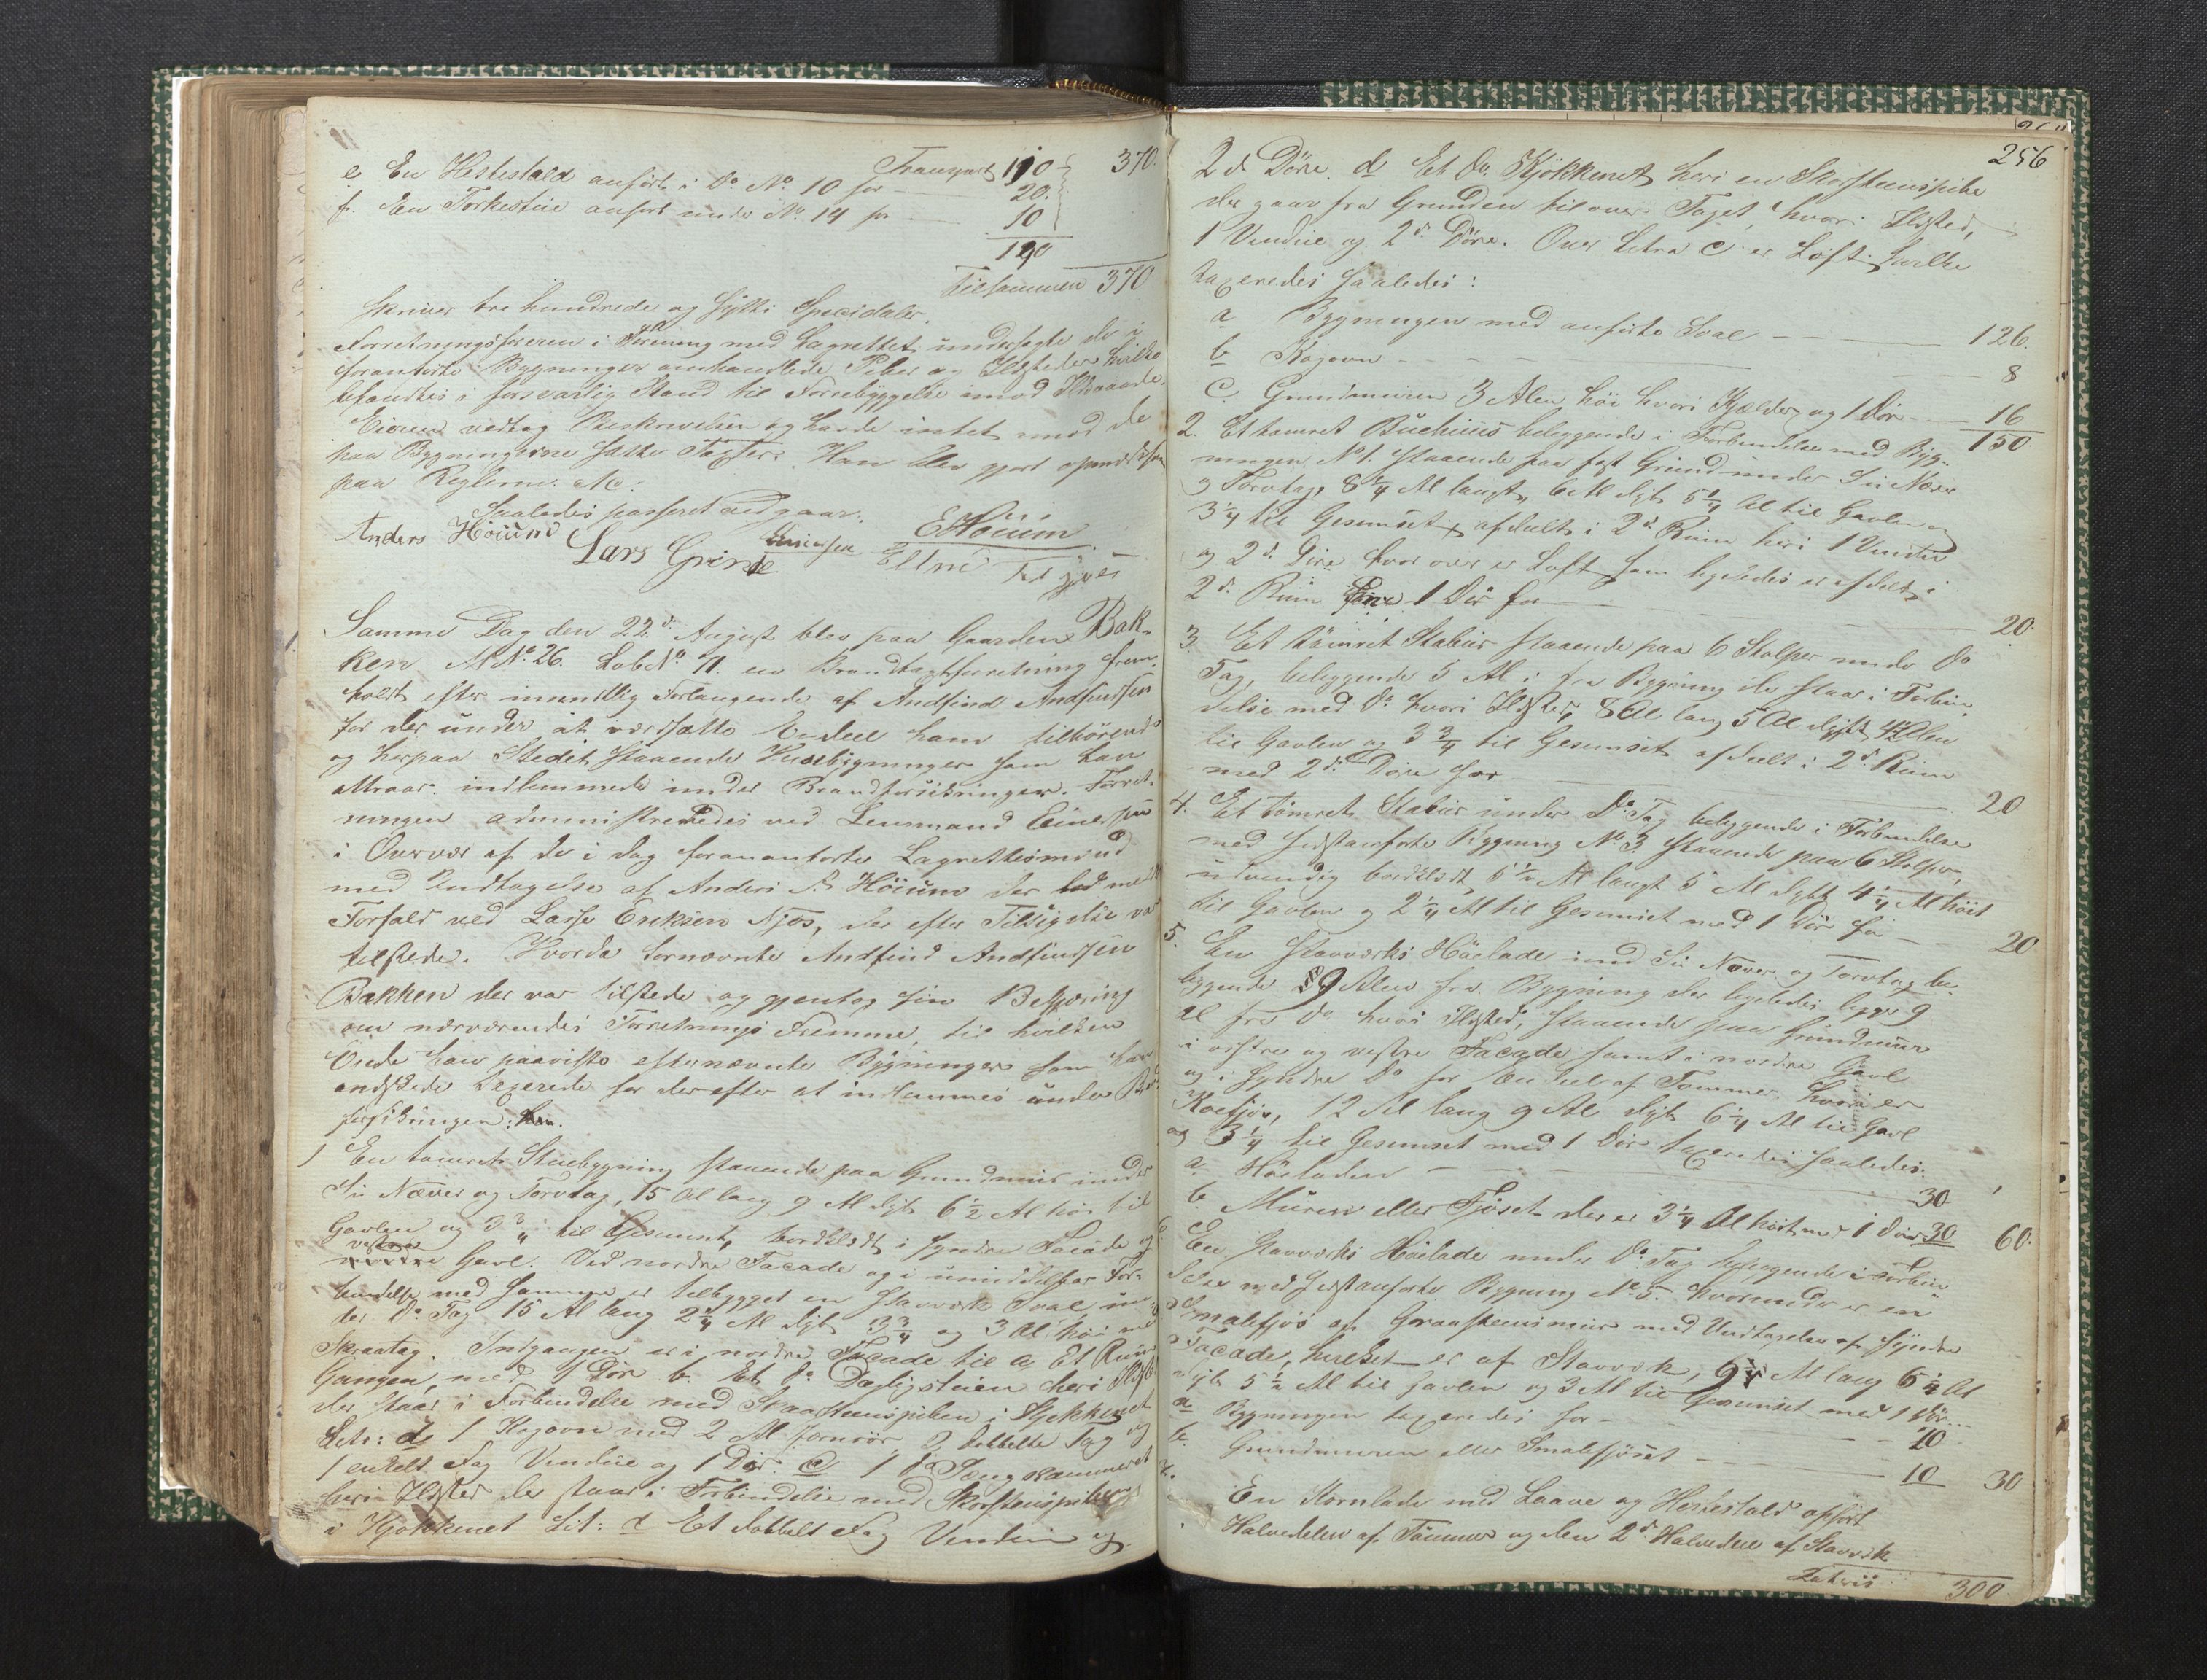 Transport 190 370.
e En Hestestald anført i Do No 10 for 20.
f. En Torkestue anført under No 14 for 10
190
tilsammen 370
skriver tre hundrede og sytti Specidaler.
Forretningsføreren i Forening med Lagrettet undersøgte de i
foranførte Bygninger omhandlede Piber og Ildsteder hvilke
befandtes i forsvarlig Stand til Forrebyggelse imod Ildvaade.
Eieren vedtog Beskrivelsen og havde intet imod de
paa Bygningerne satte Taxter. Han blev gjort opmærksom
paa Reglerne &c:
Saaledes passeret udgaar.
Anders Höium Lars Grinde EHöium
Samme Dag den 22de August blev paa Gaarden Bak-
ken M No 26. Lob No 71. en Brandtagtforretning frem-
holdt efter mundtlig Forlangende af Andfind Andfindsen
for der under at værdsætte Endeel ham tilhörende
og herpaa Stedet staaende Huusbygninger som han
attraar indlemmede under Brandforsikringen. Forret-
ningen administreredes ved Lensmand Einersen
i Overvær af de i Dag forananførte Lagrettesmænd
med Undtagelse af Anders A. Höium der had meldt
Forfald ved Lasse Eriksen Njøs, der efter Tilsigelse var
tilstede. Hvorda fornævnte Andfind Andfindsen
Bakken der var tilstede og gjentog sin Begjæring
om nærværendes Forretnings Fremme, til hvilken
Ende han paaviste efternævnte Bygninger som han
andskede taxerede for derefter at indlemmes under Brand
forsikringen:
1 En tømret Stuebygning staaende paa Grundmuur under
Su Næver og Torvtag, 15 Al lang 9 Al dyb 6½ Al höi til
Gavlen og 3¾ til Gesemset, bordklædt i syndre Facade og
vestre
nordre Gavl. Ved nordre Facade og i umiddelbar For-
bindelse med samme er tilbygget en Stavværk Sval un-
der Do Tag 15 Al lang 2¼ Al dyb 3¾ og 3 Al höi med
Skraatag. Indgangen er i nordre Facade til a Et Rum
Gangen, med 1 Döre b. Et Do Dagligstuen heri Ildsted
der staar i Forbindelse med Skorstenspiben i Kjøkkenet
Litr: d, 1 Kogovn med 2 Al Jernrör, 2 dobbelte Fag og
1 enkelt Fag Vindue og 1 Dör. c 1 Do Sengekammeret
heri Ildsted der staar i Forbindelse med Skorstenspiben
i Kjøkkenet Lit: d Et dobbelt Fag Vindue og
256
2de Döre. d Et Do Kjökkenet heri en Skorstenspibe
der gaar fra Grunden til over Taget, hvori Ildsted,
1 Vindue og 2de Döre. Over Litra c er Loft hvilke
taxeredes saaledes:
a Bygningen med anførte Sval 126.
b Kogovn 8
c. Grundmuren 3 Alen höi hvori Kjælder og 1 Dör 16
150
2. Et tømret Buehuus beliggende i Forbindelse med Byg-
ningen No 1. staaende paa fast Grund under Su Næver
og Torvtag, 8¼ Al langt, 6 Al dyb 5¼ Al til Gavlen og
3¼ til Gesemset, afdeelt i 2de Rum heri 1 Vindue
og 2de Döre hvor over er Loft som ligeledes er afdelt i
2de Rum 1 Dör for 20.
3. Et tömret Stabur staaende paa 6 Stolper under Do
Tag, beliggende 5 Al: fra Bygning der staar i Forbin-
delse med Do hvori Ildsted, 8 Al lang 5 Al dybt 4½ Alen
til Gavlen og 3¾ til Gesemset afdeelt i 2de Rum
med 2de Döre for 20
4. Et tömret Stabur under Do Tag beliggende i Forbindelse
med sidstanførte Bygning No 3. staaende paa 6 Stolper,
udvendig bordklædt 5½ Al langt 5 Al dybt 4¼ Al höit
til Gavlen og 2¼ Al til Gesemset med 1 Dör for 20.
5. En Stavværks Höelade med Su Næver og Torvtag be-
liggende 9 Alen fra Bygning der ligeledes ligger 9
Al fra Do hvori Ildsted, staaende paa Grundmuur
i østre og vestre Facade samt i nordre Gavl
og i syndre Do for Endeel af Tømmer, hvori er
Koefjøs, 12 Al lang 9 Al dyb 6¼ Al til Gavl
og 3¼ til Gesemset med 1 Dör taxeredes saaledes:
a. Höeladen 30
b. Muren eller Fjöset der er 3¼ Al höit med 1 Dör 30 60.
6. En Stavværks Höelade under Do Tag beliggende i Forbin-
delse med sidstanførte Bygning No 5. hvorunder er en
Smalefjøs af Graasteensmuur med Undtagelse af syndre
Facade, hvilket er af Stavværk, 9¼ Al lang 6½ Al
dyb 5½ Al til Gavlen og 3 Al til Gesemset med 1 Dör
a Bygningen taxeredes for 20
b. Grundmuren eller Smalefjöset 10 30
7. En Kornlade med Laave og Hestestald opført
Halvedelen af Tömmer og den 2de Halvedeel af Stavværk
Lateris 300